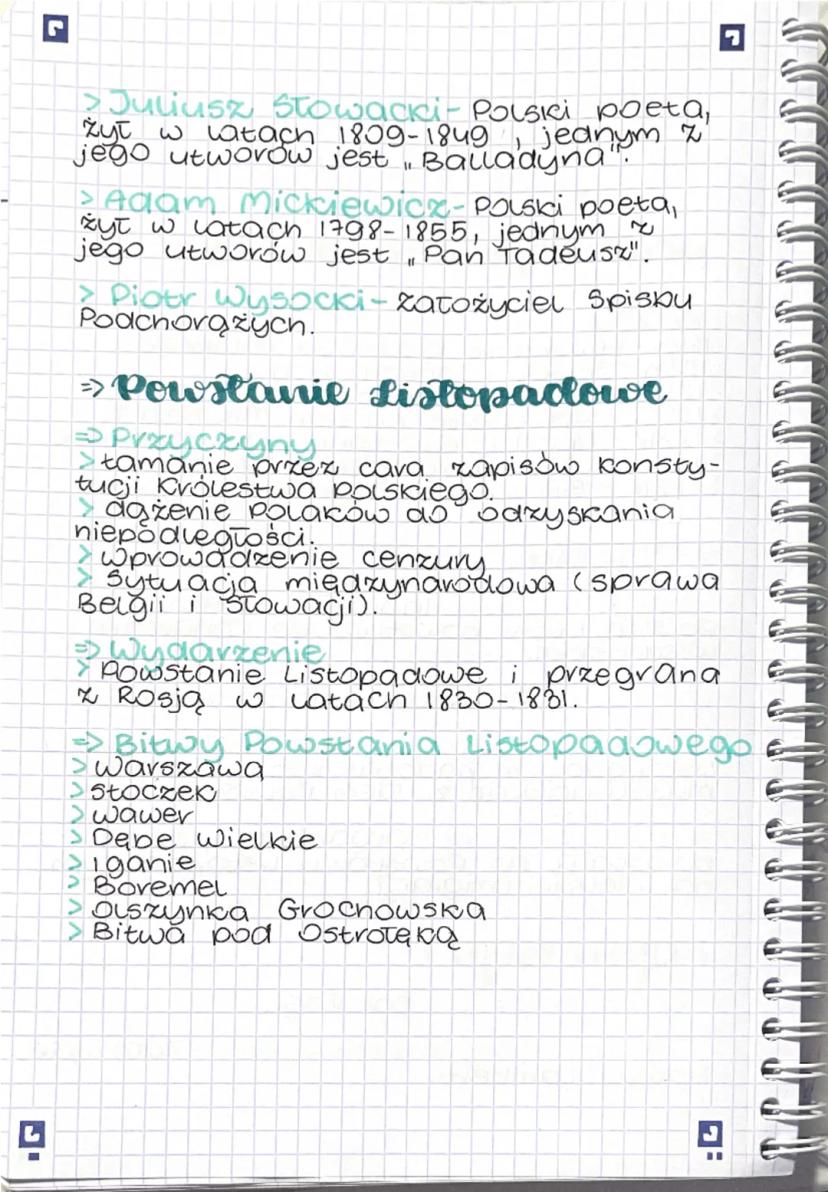 > Juliusz Słowacki - Polski poeta,
żył w latach 1809-1849, jednym z
jego utworów jest „Balladyna".
> Adam Mickiewicz - Polski poeta,
żył w latach 1798-1855, jednym z
jego utworów jest „Pan Tadeusz".
> Piotr Wysocki - założyciel Spisku
Podchorążych.
=> Powstanie Listopadowe
=> Przyczyny
> łamanie przez cara zapisów konsty-
tucji Królestwa Polskiego.
> dążenie polaków do odzyskania
niepodległości.
> wprowadzenie cenzury
> Sytuacja międzynarodowa (sprawa
Belgii i Słowacji).
=> Wydarzenie
> Powstanie Listopadowe i przegrana
z Rosją w latach 1830-1831.
=> Bitwy Powstania Listopadowego
> Warszawa
> Stoczek
> Wawer
> Dębe Wielkie
> Iganie
> Boremel
> Olszynka Grochowska
> Bitwa pod Ostrołęką